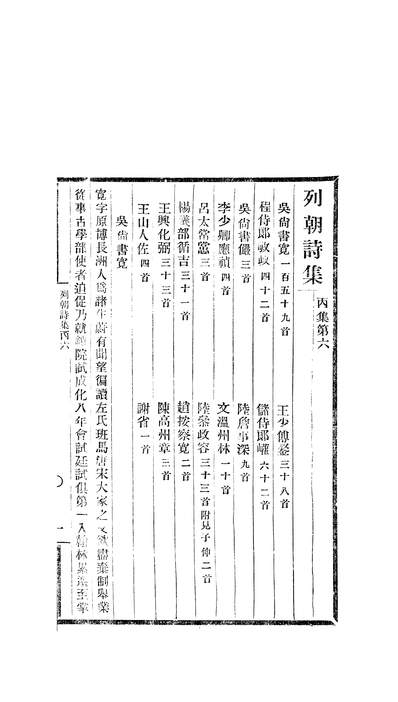 列朝詩集 丙集第六
吳尚書寬一百五十九首 王少傅鏊三十八首
程侍郎敏政四十二首 儲侍郎巏六十二首
吳尚書儼三首 陸詹事深九首
李少卿應禎四首 文溫州林一十首
呂太常㦂三首 陸參政容三十三首附見子伸二首
楊儀部循吉三十一首 趙按察寬二首
王興化弼三十三首 陳高州章三首
王山人佐四首 謝省一首
吳尚書寬
寬字原博長洲人爲諸生蔚有聞望徧讀左氏班馬唐宋大家之文欲盡棄制舉業
從事古學部使者迫促乃就鎖院試成化八年會試廷試俱第一入翰林累遷至掌
列朝詩集丙六
一